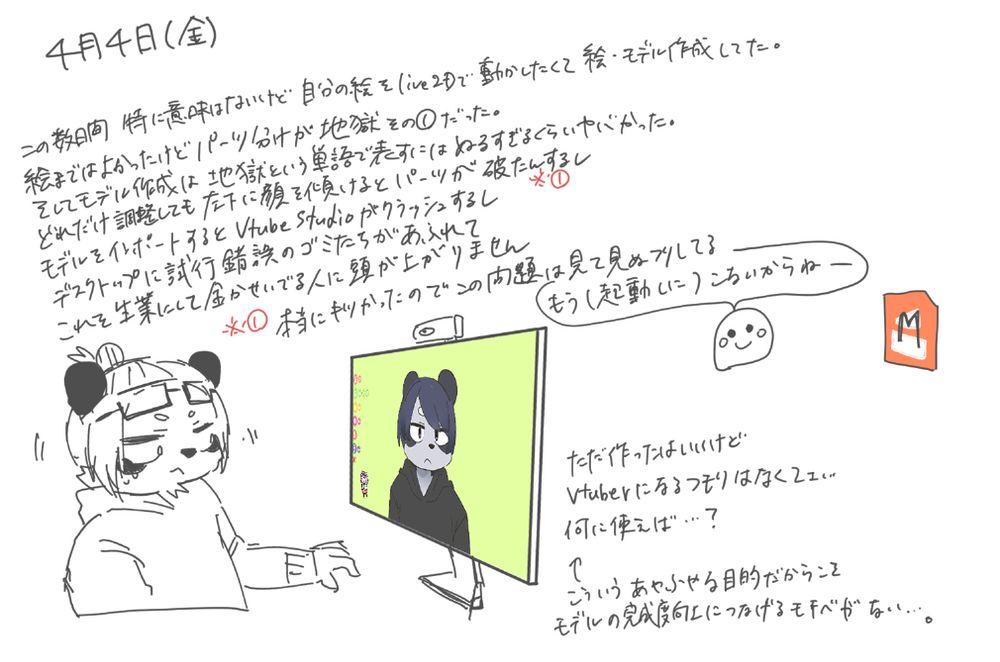 4月4日(金)
この数日間 特に意味はないけど 自分の絵をlive2Dで動かしたくて 絵・モデル作成してた。
絵まではよかったけどパーツ分けが 地獄その①だった。
そしてモデル作成は 地獄という単語で表すにはぬるすぎるくらいヤバかった。
どれだけ調整しても左下に顔を傾けるとパーツが破たんするし
※①
モデルをインポートするとVtube Studioがクラッシュするし
デスクトップに試行錯誤のゴミたちがあふれて
これを生業にして金かせいでる人に頭が上がりません
※① 本当にキツかったのでこの問題は見て見ぬフリしてる
もう(起動しに)こないからねー
M
ただ作ったはいいけど
Vtuberになるつもりはなくて
何に使えば…?
↑
こういうあやふやな目的だからこそ
モデルの完成度向上につなげるモチベがない…。